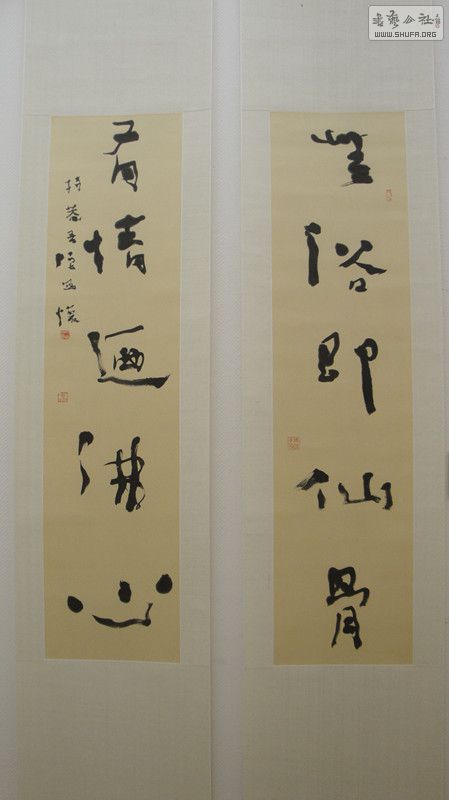 書藝公社
WWW.SHUFA.ORG
無俗即仙骨
有情迺佛心